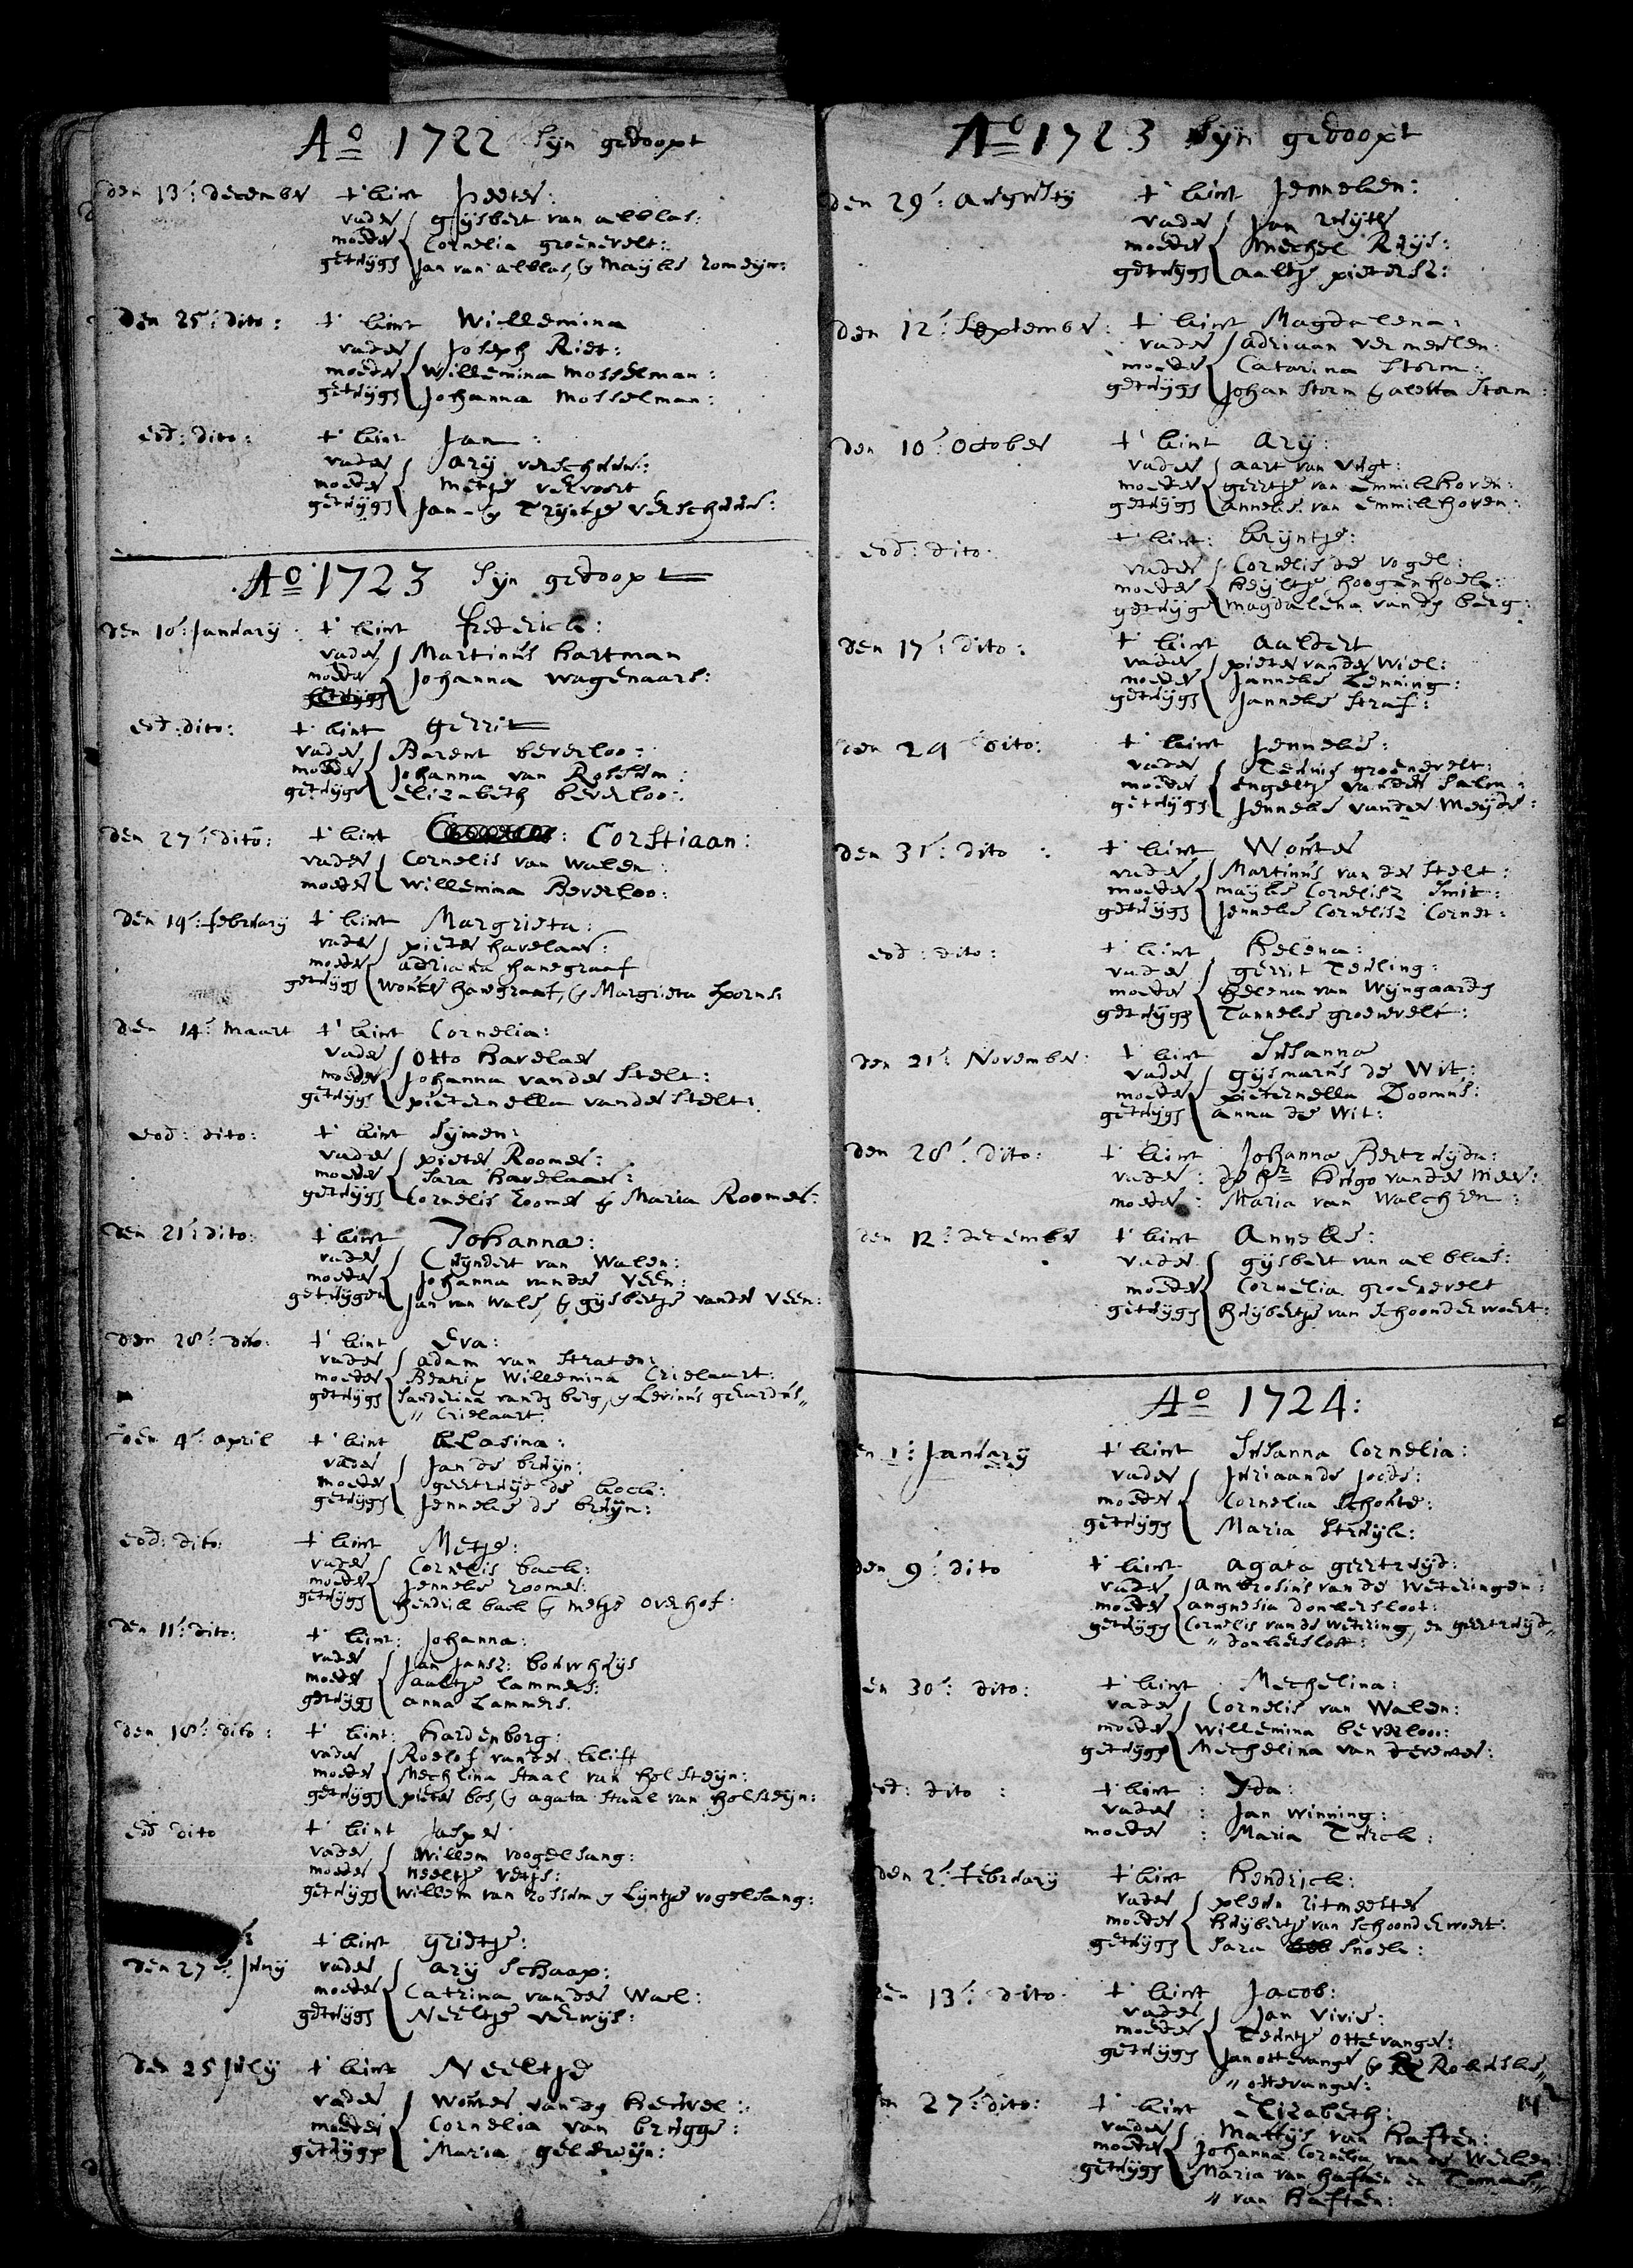 Ao 1722 Syn gedoopt
den 13: december t' kint Peeter:
vader gijsbert van alblas:
moeder Cornelia groenevelt:
getuijgs Jan van alblas, en Maijke Romeijn:
Den 25: dito: t' kint Willemina
vader Joseph Riet:
moeder Willemina Mosselman:
getuijgs Johanna Mosselman:
eod: dito: t' kint Jan:
vader Arij verschuur:
moeder Metje vervoort
getuijgs Jan en Trijntje verschuur:
Ao 1723 Syn gedoopt
den 10: January t' kint frederick:
vader Martinus Hartman
moeder Johanna Wagenaars:
getuijgs
eod: dito: t' kint Gerrit
vader Barent beverloo:
moeder Johanna van Rossum:
getuijge elizabeth beverloo:
den 27: dito: t' kint Corstiaan:
vader Cornelis van Walen:
moeder Willemina Beverloo:
den 14: februarij t' kint Margrieta:
vader pieter havelaar:
moeder adriana hanegraaf
getuijgs Wouter hanegraaf, en Margrieta
den 14: Maart t' kint Cornelia:
vader Otto Havelaer
moeder Johanna vander Stelt:
getuijgs pieternella vander Stelt:
eod: dito: t' kint Symen:
vader pieter Roomer:
moeder Sara Havelaar:
getuijgs Cornelis roomer en Maria Roomer:
den 21: dito: t' kint Johanna:
vader Crijndert van Walen:
moeder Johanna vander Veen:
getuijgen Jan van Wale, en gijsbertje vander Veen:
den 28: dito: t' kint Eva:
vader adam van Straten:
moeder Beatrix Willemina Crielaart:
getuijgs Sanderina vande berg, en Levinus gerardus,,
,, Crielaart:
den 4: april t' kint Klasina:
vader Jan de bruijn:
moeder geertruijd de kock:
getuijgs Jenneke de bruijn:
eod: dito: t' kint Metje:
vader Cornelis back:
moeder Jenneke roomer:
getuijgs Hendrik back en metje overhof:
den 11: dito: t' kint: Johanna:
vader Jan Jansz: bouwhuijs
moeder aaltje lammers:
getuijgs anna Lammers.
den 18: dito: t' kint: Hardenborg:
vader Roelof vander klift
moeder Mechlina Staal van Holsteijn:
getuijgs pieter bos, en agata Staal van Holsteijn:
eod dito t' kint Jasper
vader Willem voogelsang:
moeder neeltje
getuijgs Willem van rossum en Lijntje vogelsang:
t' kint grietje:
den 27: Junij vader arij Schaap:
moeder Catrina vander Wal:
getuijgs Neeltje verwijs:
den 25 July t' kint Neeltje
vader Wouter vandn Heuvel:
moeder Cornelia van brugge:
getuijge Maria geldewijn:
Ao 1723 Syn gedoopt
den 29: augusty t' kint Jenneken:
vader Jan
moeder Mechel Buijs:
getuijgs aaltje pietersz:
den 12: September: t' kint Magdalena:
vader adriaan vermeulen:
moeder Catarina Storm:
getuijgs Johan Storm en aletta Storm:
den 10: October t' kint Arij:
vader aart van vugt:
moeder geertje van emmikhoven:
getuijgs anneke van emmikhoven:
eod: dito: t' kint: krijntje:
vader Cornelis de vogel:
moeder heijltje hoogenhoek:
getuijge magdalena van de berg:
den 17: dito: t' kint aaldert
vader pieter vander Wiel:
moeder Janneke Lenning:
getuijgs Janneke Straf:
den 24 dito: t' kint Jenneke:
vader Teunis groenevelt:
moeder engeltje vander Salm:
getuijgs Jenneke vander Meijde:
den 31: dito: t' kint Wouter
vader Martinus van der Stelt:
moeder maijke Cornelisz Smit:
getuijgs Jenneke Cornelisz Cornet:
eod: dito: t' kint Helena:
vader gerrit Teuling:
moeder Helena van Wijngaarde
getuijge Tanneke groenevelt:
den 21: November: t' kint Susanna
vader gijsmarus de Wit:
moeder pieternella Doomus:
getuijgs anna de Wit:
den 28: dito: t' kint Johanna Bertruijda:
vader: de hr Hugo vander Meer:
moeder: Maria van Walchren:
den 12: december t' kint Anneke:
vader gijsbert van alblas:
moeder Cornelia groenevelt
getuijgs Huijbertje van Schoonderwoert:
Ao 1724:
den 1: January t' kint Susanna Cornelia:
vader Juriaan de Joode:
moeder Cornelia Schoute:
getuijgs Maria Struijk:
den 9: dito t' kint agata geertruijd:
vader ambrosius van de Weteringen:
moeder angnesia donkersloot:
getuijgs Cornelis vande Wetering, en geertruijd,,
,, donkersloot:
den 30: dito: t' kint Mechelina:
vader Cornelis van Walen:
moeder Willemina beverloo:
getuijge Mechelina van deventer:
eod: dito: t' kint: Yda:
vader: Jan Winning:
moeder: Maria Turck:
den 2: februarij t' kint Hendrick:
vader pleun ritmeester
moeder Huijbertje van Schoonderwoert:
getuijgs Sara Snoek:
den 13: dito. t' kint Jacob:
vader Jan Vivie:
moeder Teuntje ottevanger:
getuijgs Jan ottevanger en,,
,, ottevanger:
den 27: dito: t' kint Elizabeth:
vader Mattijs van Haften:
moeder Johanna Cornelia van der Werken:
getuijgs Maria van Haften en Tomas,,
,, van Haften: